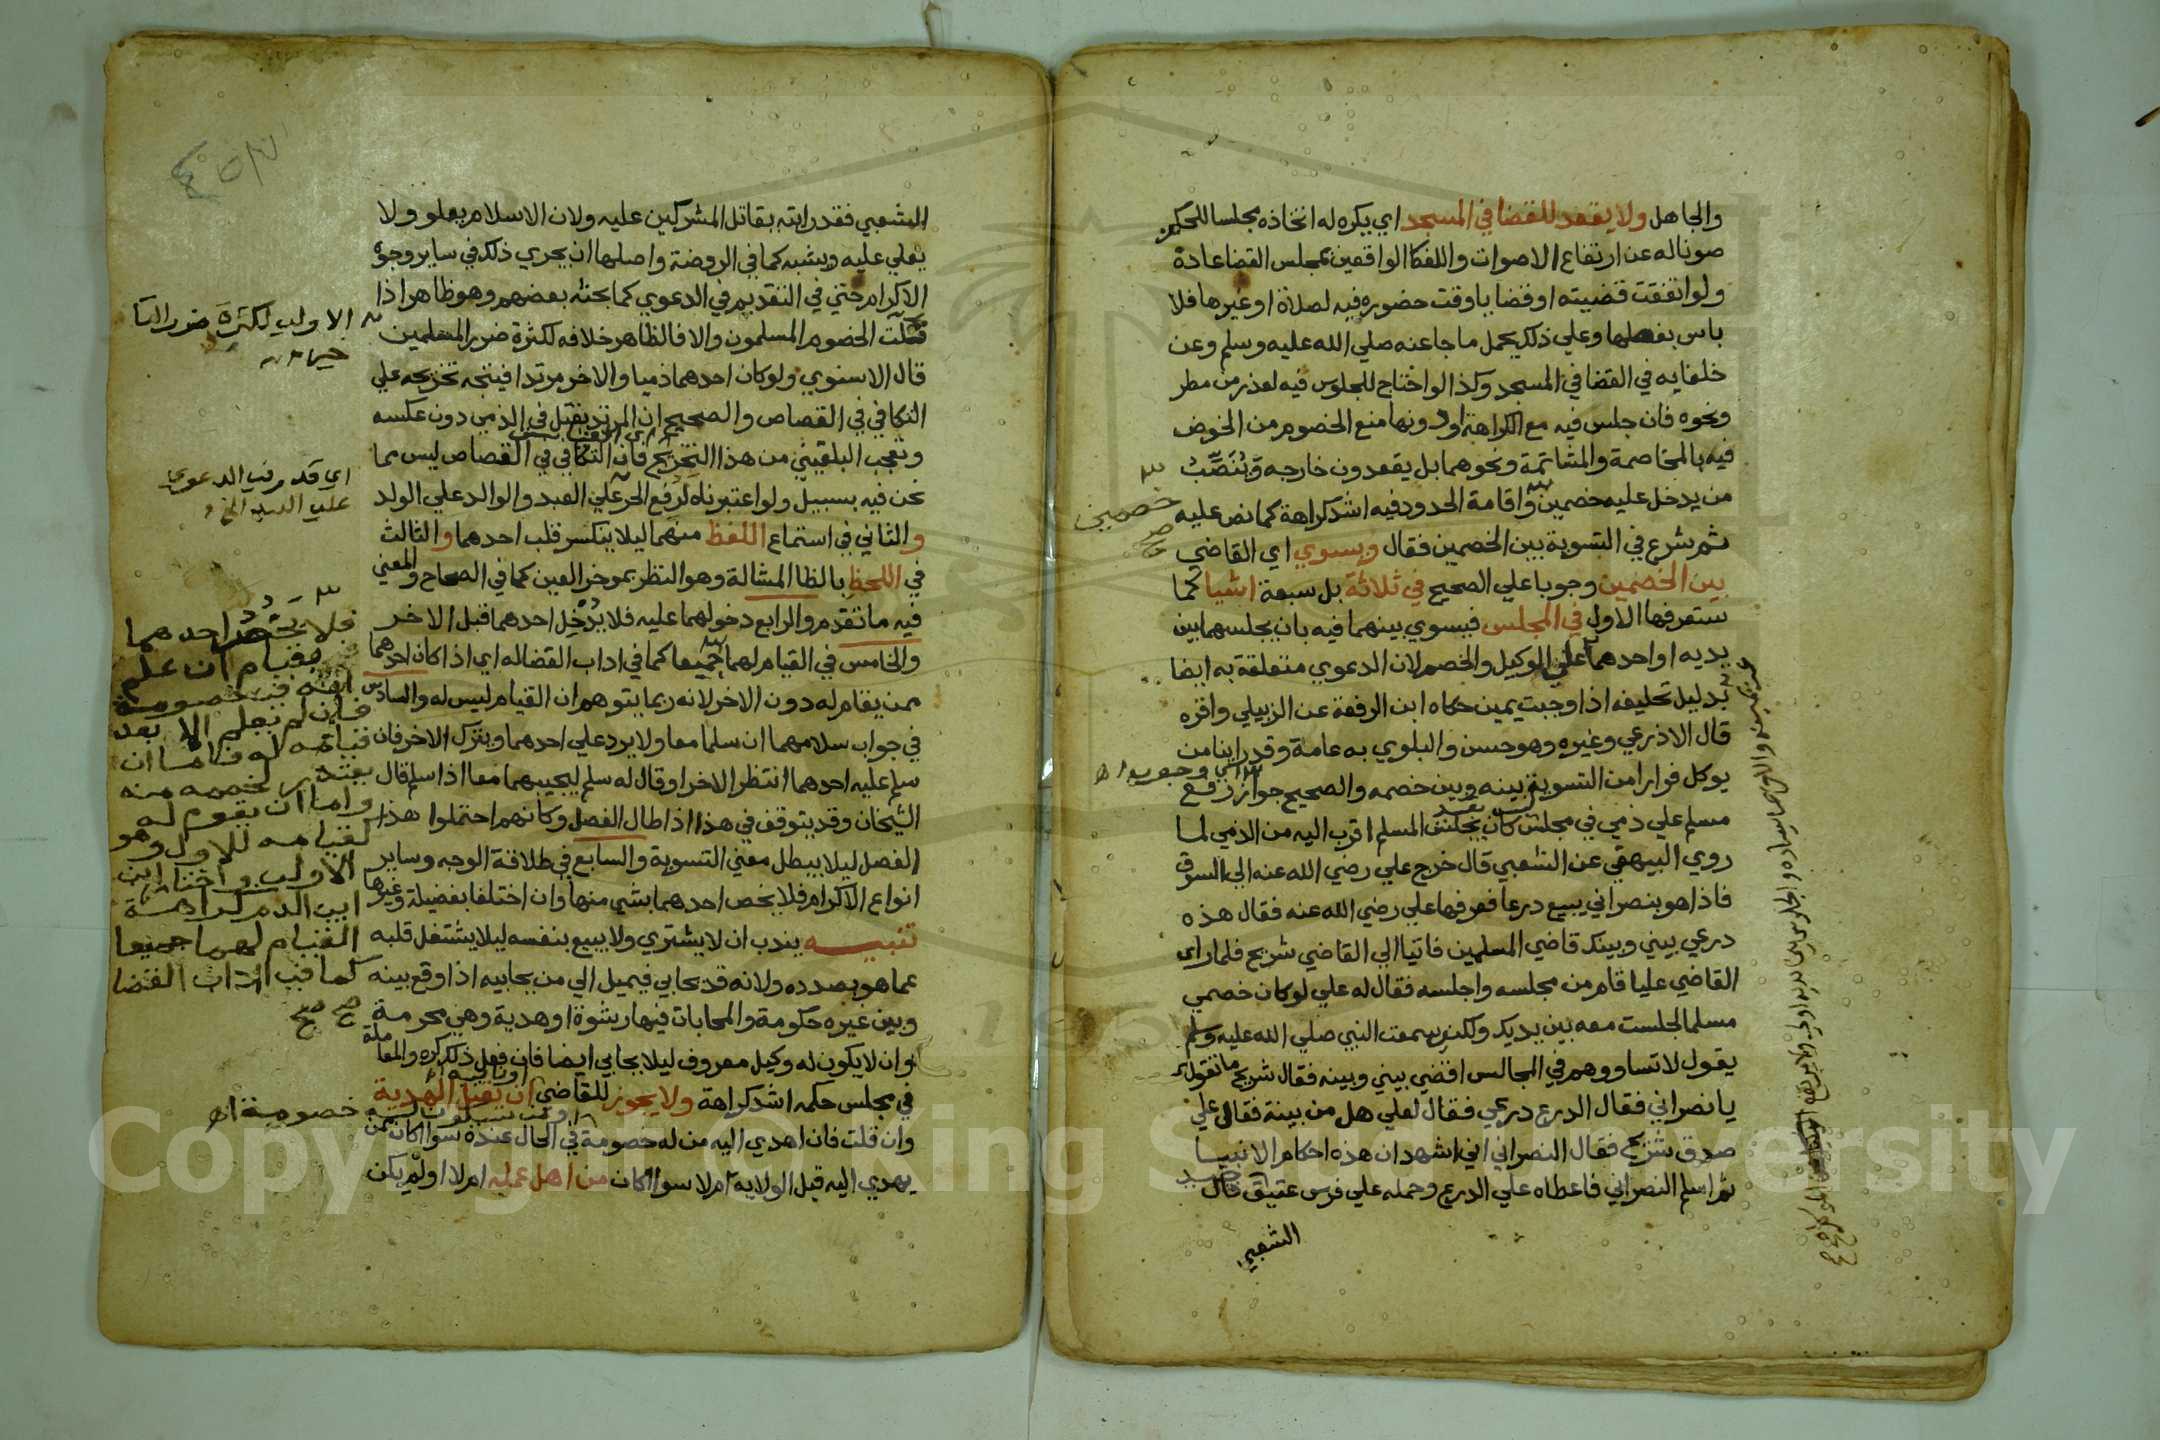 والجاهل ولا يقعد للقضا في المسجد اي يكره له اتخاذه مجلسا للحكم
صونا له عن ارتفاع الاصوات واللغط الواقعين بمجلس القضا عادة
ولو اتفقت قضيته او قضايا وقت حضوره فيه لصلاة او غيرها فلا
باس بفصلها وعلي ذلك يحمل ما جا عنه صلي الله عليه وسلم وعن
خلفايه في القضا في المسجد وكذا لو احتاج للجلوس فيه لعذر من مطر
ونحوه فان جلس فيه مع الكراهة او دونها منع الخصوم من الخوض
فيه بالمخاصمة والمشاتمة ونحوهما بل يقعدون خارجه وينصب
من يدخل عليه خصمين واقامة الحدود فيه اشد كراهة كما نص عليه
خصمين
ثم شرع في التسوية بين الخصمين فقال ويسوي اي القاضي
بين الخصمين وجوبا علي الصحيح في ثلاثة بل سبعة اشيا كما
ستعرفها الاول في المجلس فيسوي بينهما فيه بان يجلسهما بين
يديه او احدهما علي الوكيل والخصم لان الدعوي متعلقة به ايضا
بدليل تحليفه اذا وجبت يمين حكاه ابن الرفعة عن الزبيلي واقره
قال الاذرعي وغيره وهو حسن والبلوي به عامة وقد راينا من
يوكل فرارا من التسوية بينه وبين خصمه والصحيح جواز رفع
مسلم علي ذمي في مجلس كان يجلس المسلم اقرب اليه من الذمي لما
روي البيهقي عن الشعبي قال خرج علي رضي الله عنه الي السوق
فاذا هو بنصراني يبيع درعا فعرفها علي رضي الله عنه فقال هذه
درعي بيني وبينك قاضي المسلمين فاتيا الي القاضي شريح فلما راي
القاضي عليا قام من مجلسه واجلسه فقال له علي لو كان خصمي
مسلما لجلست معه بين يديك ولكن سمعت النبي صلي الله عليه وسلم
يقول لا تساووهم في المجالس اقضي بيني وبينه فقال شريح ما تقول
يا نصراني فقال الدرع درعي فقال لعلي هل من بينة فقال علي
صدق شريح فقال النصراني اني اشهد ان هذه احكام الانبيا
ثم اسلم النصراني فاعطاه علي الدرع وحمله علي فرس عتيق قال
الشعبي
الشعبي فقد رايته يقاتل المشركين عليه ولان الاسلام يعلو ولا
يعلي عليه ويشبه كما في الروضة واصلها ان يجري ذلك في ساير وجوه
الاكرام حتي في التقديم في الدعوي كما بحثه بعضهم وهو ظاهر اذا
قلت الخصوم المسلمون والا فالظاهر خلافه لكثرة ضرر المسلمين
الاولي لكثرة ضرر
قال الاسنوي ولو كان احدهما ذميا والاخر مرتدا فيتجه تخريجه علي
التكافي في القصاص والصحيح ان المرتد يقتل في الذمي دون عكسه
وتعجب البلقيني من هذا التخريج فان التكافي في القصاص ليس مما
نحن فيه بسبيل ولو اعتبرناه لرفع الحر علي العبد والوالد علي الولد
والثاني في استماع اللفظ منهما ليلا ينكسر قلب احدهما والثالث
في اللحظ بالظا المشالة وهو النظر بموخر العين كما في الصحاح والمعني
فيه ما تقدم والرابع دخولهما عليه فلا يدخل احدهما قبل الاخر
والخامس في القيام لهما جميعا كما في اداب القضا له اي اذا كان احدهما
ممن يقام له دون الاخر لانه ربما يتوهم ان القيام ليس له والسادس
في جواب سلامهما ان سلما معا ولا يرد علي احدهما ويترك الاخر فان
سلم عليه احدهما انتظر الاخر او قال له سلم ليجيبهما معا اذا سلم قال
الشيخان وقد يتوقف في هذا اذا طال الفصل وكانهم احتملوا هذا
الفصل ليلا يبطل معني التسوية والسابع في طلاقة الوجه وساير
انواع الاكرام فلا يخص احدهما بشي منها وان اختلفا بفضيلة وغيرها
تنبيه يندب ان لا يشتري ولا يبيع بنفسه ليلا يشتغل قلبه
عما هو بصدده ولانه قد يحابي فيميل الي من يحابيه اذا وقع بينه
وبين غيره حكومة والمحابات فيها رشوة او هدية وهي محرمة
وان لا يكون له وكيل معروف ليلا يحابي ايضا فان فعل ذلك كره والمعاملة
في مجلس حكمه اشد كراهة ولا يجوز للقاضي ان يقبل الهدية
وان قلت فان اهدي اليه من له خصومة في الحال عنده سوا اكان ممن
يهدي اليه قبل الولاية ام لا سوا اكان من اهل عمله ام لا او لم يكن
فلا يخص احدهما
بقيام ان علم
انه في خصومة
فان لم يعلم الا بعد
قيامه له فاما ان
يعتذر لخصمه منه
واما ان يقوم له
كقيامه للاول وهو
الاولي واختار ابن
ابي الدم كراهة
القيام لهما جميعا
كما في اداب القضا
صح صح
خصومة اه